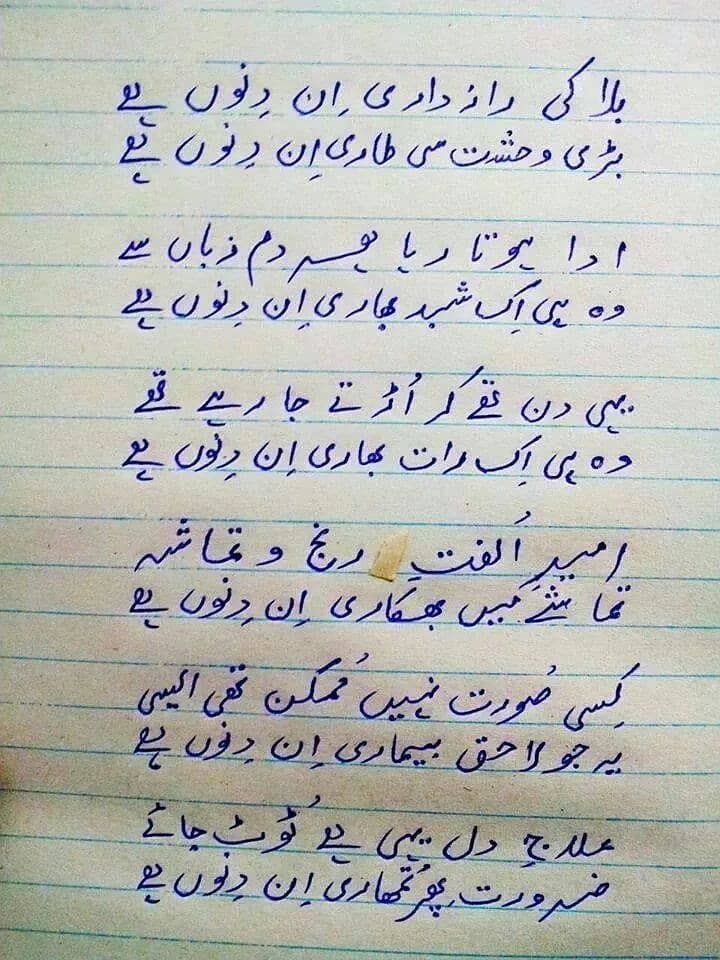 بلا کی رازداری اِن دِنوں ہے
بڑی وحشت سی طاری اِن دِنوں ہے
ادا ہوتا رہا ہر دم زباں سے
وہ ہی اِک شبد بھاری اِن دِنوں ہے
یہی دن تھے کہ اُڑتے جا رہے تھے
وہ ہی اِک رات بھاری اِن دِنوں ہے
امیدِ اُلفتِ رنج و تماشہ
تماشے میں بھکاری اِن دِنوں ہے
کِسی صُورت نہیں مُمکن تھی ایسی
یہ جو لاحق بیماری اِن دِنوں ہے
علاجِ دل یہی ہے ٹُوٹ جائے
ضرورت پھر تُمھاری اِن دِنوں ہے